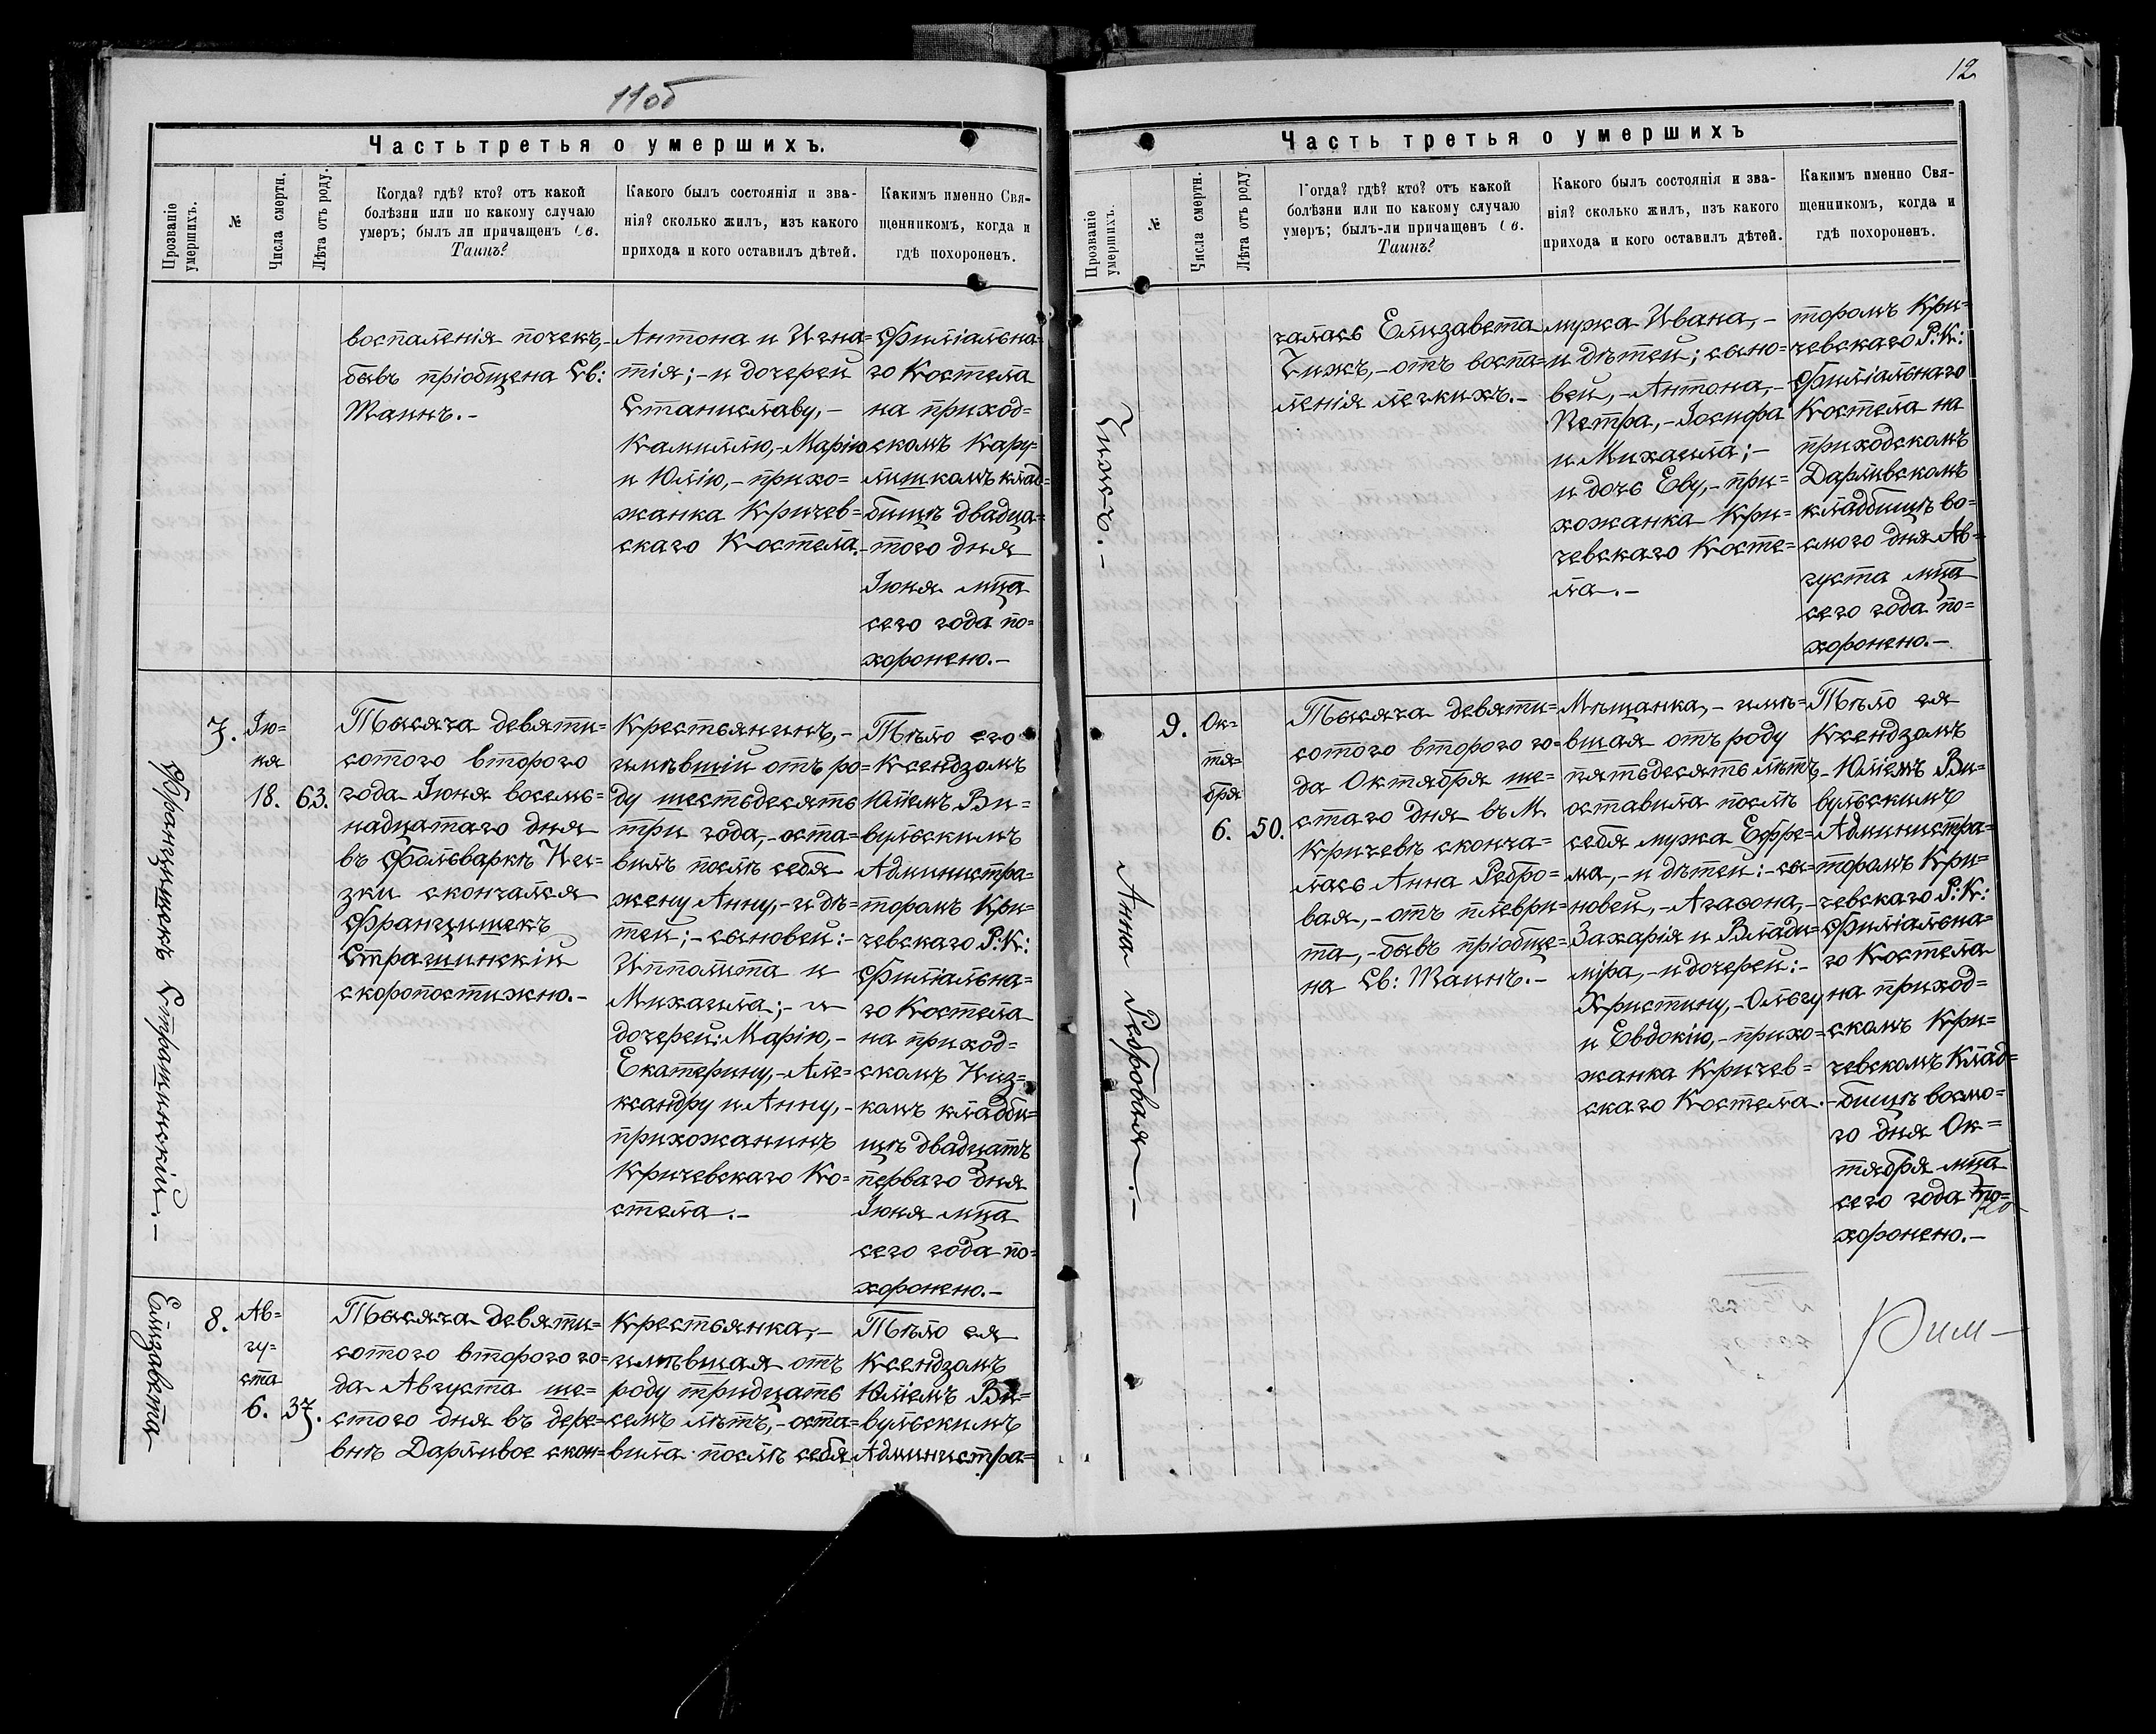 11об
Часть третья о умершихъ.
Прозваніе умершихъ.
№
Числа смерти.
Лѣта отъ роду.
Когда? гдѣ? кто? отъ какой
болѣзни или по какому случаю
умеръ; былъ ли причащенъ Св.
Таинъ?
Какого былъ состоянія и зва-
нія? сколько жилъ, изъ какого
прихода и кого оставилъ дѣтей.
Какимъ именно Свя-
щенникомъ, когда и
гдѣ похороненъ.
воспаленія почекъ,-
бывъ пріобщена Св:
Таинъ.-
Антона и Игна=
тія;-и дочерей
Станиславу,-
Камиллю,-Марію
и Юлію,-прихо=
жанка Кричев=
скаго Костела.-
Филіальна=
го Костела
на приход=
скомъ Кару=
лишкомъ клад=
бищѣ двадца=
того дня
Іюня мца
сего года по=
хоронено.-
Францишекъ Страшинскій.-
7.
Ію=
ня
18.
63.
Тысяча девяти=
сотого второго
года Іюня восемь=
надцатаго дня
въ Фольваркѣ Ни=
зки скончался
Францишекъ
Страшинскій
скоропостижно.-
Крестьянинъ,-
имѣвшій отъ ро=
ду шестьдесятъ
три года,-оста=
вилъ послѣ себя
жену Анну,-и дѣ=
тей;-сыновей:-
Ипполита и
Михаила;-и
дочерей:Марію,-
Екатерину,-Але=
ксандру и Анну,-
прихожанинъ
Кричевскаго Ко=
стела.-
Тѣло его
Ксендзомъ
Юліемъ Ви=
вульскимъ
Администра=
торомъ Кри=
чевскаго Р:К:
Филіальна=
го Костела
на приход=
скомъ Низ=
комъ кладби=
щѣ двадцать
перваго дня
Іюня мца
сего года по=
хоронено.-
Елизавета
8.
Ав=
гу=
ста
6.
37.
Тысяча девяти=
сотого второго го=
да Августа ше=
стого дня въ дере=
внѣ Дарливое скон=
Крестьянка,-
имѣвшая отъ
роду тридцать
семь лѣтъ,-оста=
вила послѣ себя
Тѣло ея
Ксендзомъ
Юліемъ Ви=
вульскимъ
Администра=
12
Часть третья о умершихъ
Прозваніе умершихъ.
№
Числа смерти.
Лѣта отъ роду.
Когда? гдѣ? кто? отъ какой
болѣзни или по какому случаю
умеръ; былъ-ли причащенъ Св.
Таинъ?
Какого былъ состоянія и зва-
нія? сколько жилъ, изъ какого
прихода и кого оставилъ дѣтей.
Какимъ именно Свя-
щенникомъ, когда и
гдѣ похороненъ.
Чижъ.-
чалась Елизавета
Чижъ,-отъ воспа=
ленія легкихъ.-
мужа Ивана,-
и дѣтей; сыно=
вей,-Антона,-
Петра,-Іосифа
и Михаила;-
и дочь Еву,-при=
хожанка Кри=
чевскаго Косте=
ла.-
торомъ Кри=
чевскаго Р:К:
Филіальнаго
Костела на
приходскомъ
Дарливскомъ
кладбищѣ во=
смого дня Ав=
густа мца
сего года по=
хоронено.-
Анна Ребровая.-
9.
Ок=
тя=
бря
6.
50.
Тысяча девяти=
сотого второго го=
да Октября ше=
стаго дня въ М.
Кричевѣ сконча=
лась Анна Ребро=
вая,-отъ плеври=
та,-бывъ пріобще=
на Св: Таинъ.-
Мѣщанка,-имѣ=
вшая отъ роду
пятьдесятъ лѣтъ,-
оставила послѣ
себя мужа Ефре=
ма,-и дѣтей:-сы=
новей,-Агафона,-
Захарія и Влади=
міра,-и дочерей:-
Христину,-Ольгу
и Евдокію,-прихо=
жанка Кричев=
скаго Костела.-
Тѣло ея
Ксендзомъ
Юліемъ Ви=
вульскимъ
Администра=
торомъ Кри=
чевскаго Р:К:
Филіальна=
го Костела
на приход=
скомъ Кри=
чевскомъ Клад=
бищѣ восмо=
го дня Ок=
тября мца
сего года по=
хоронено.-
Рим-